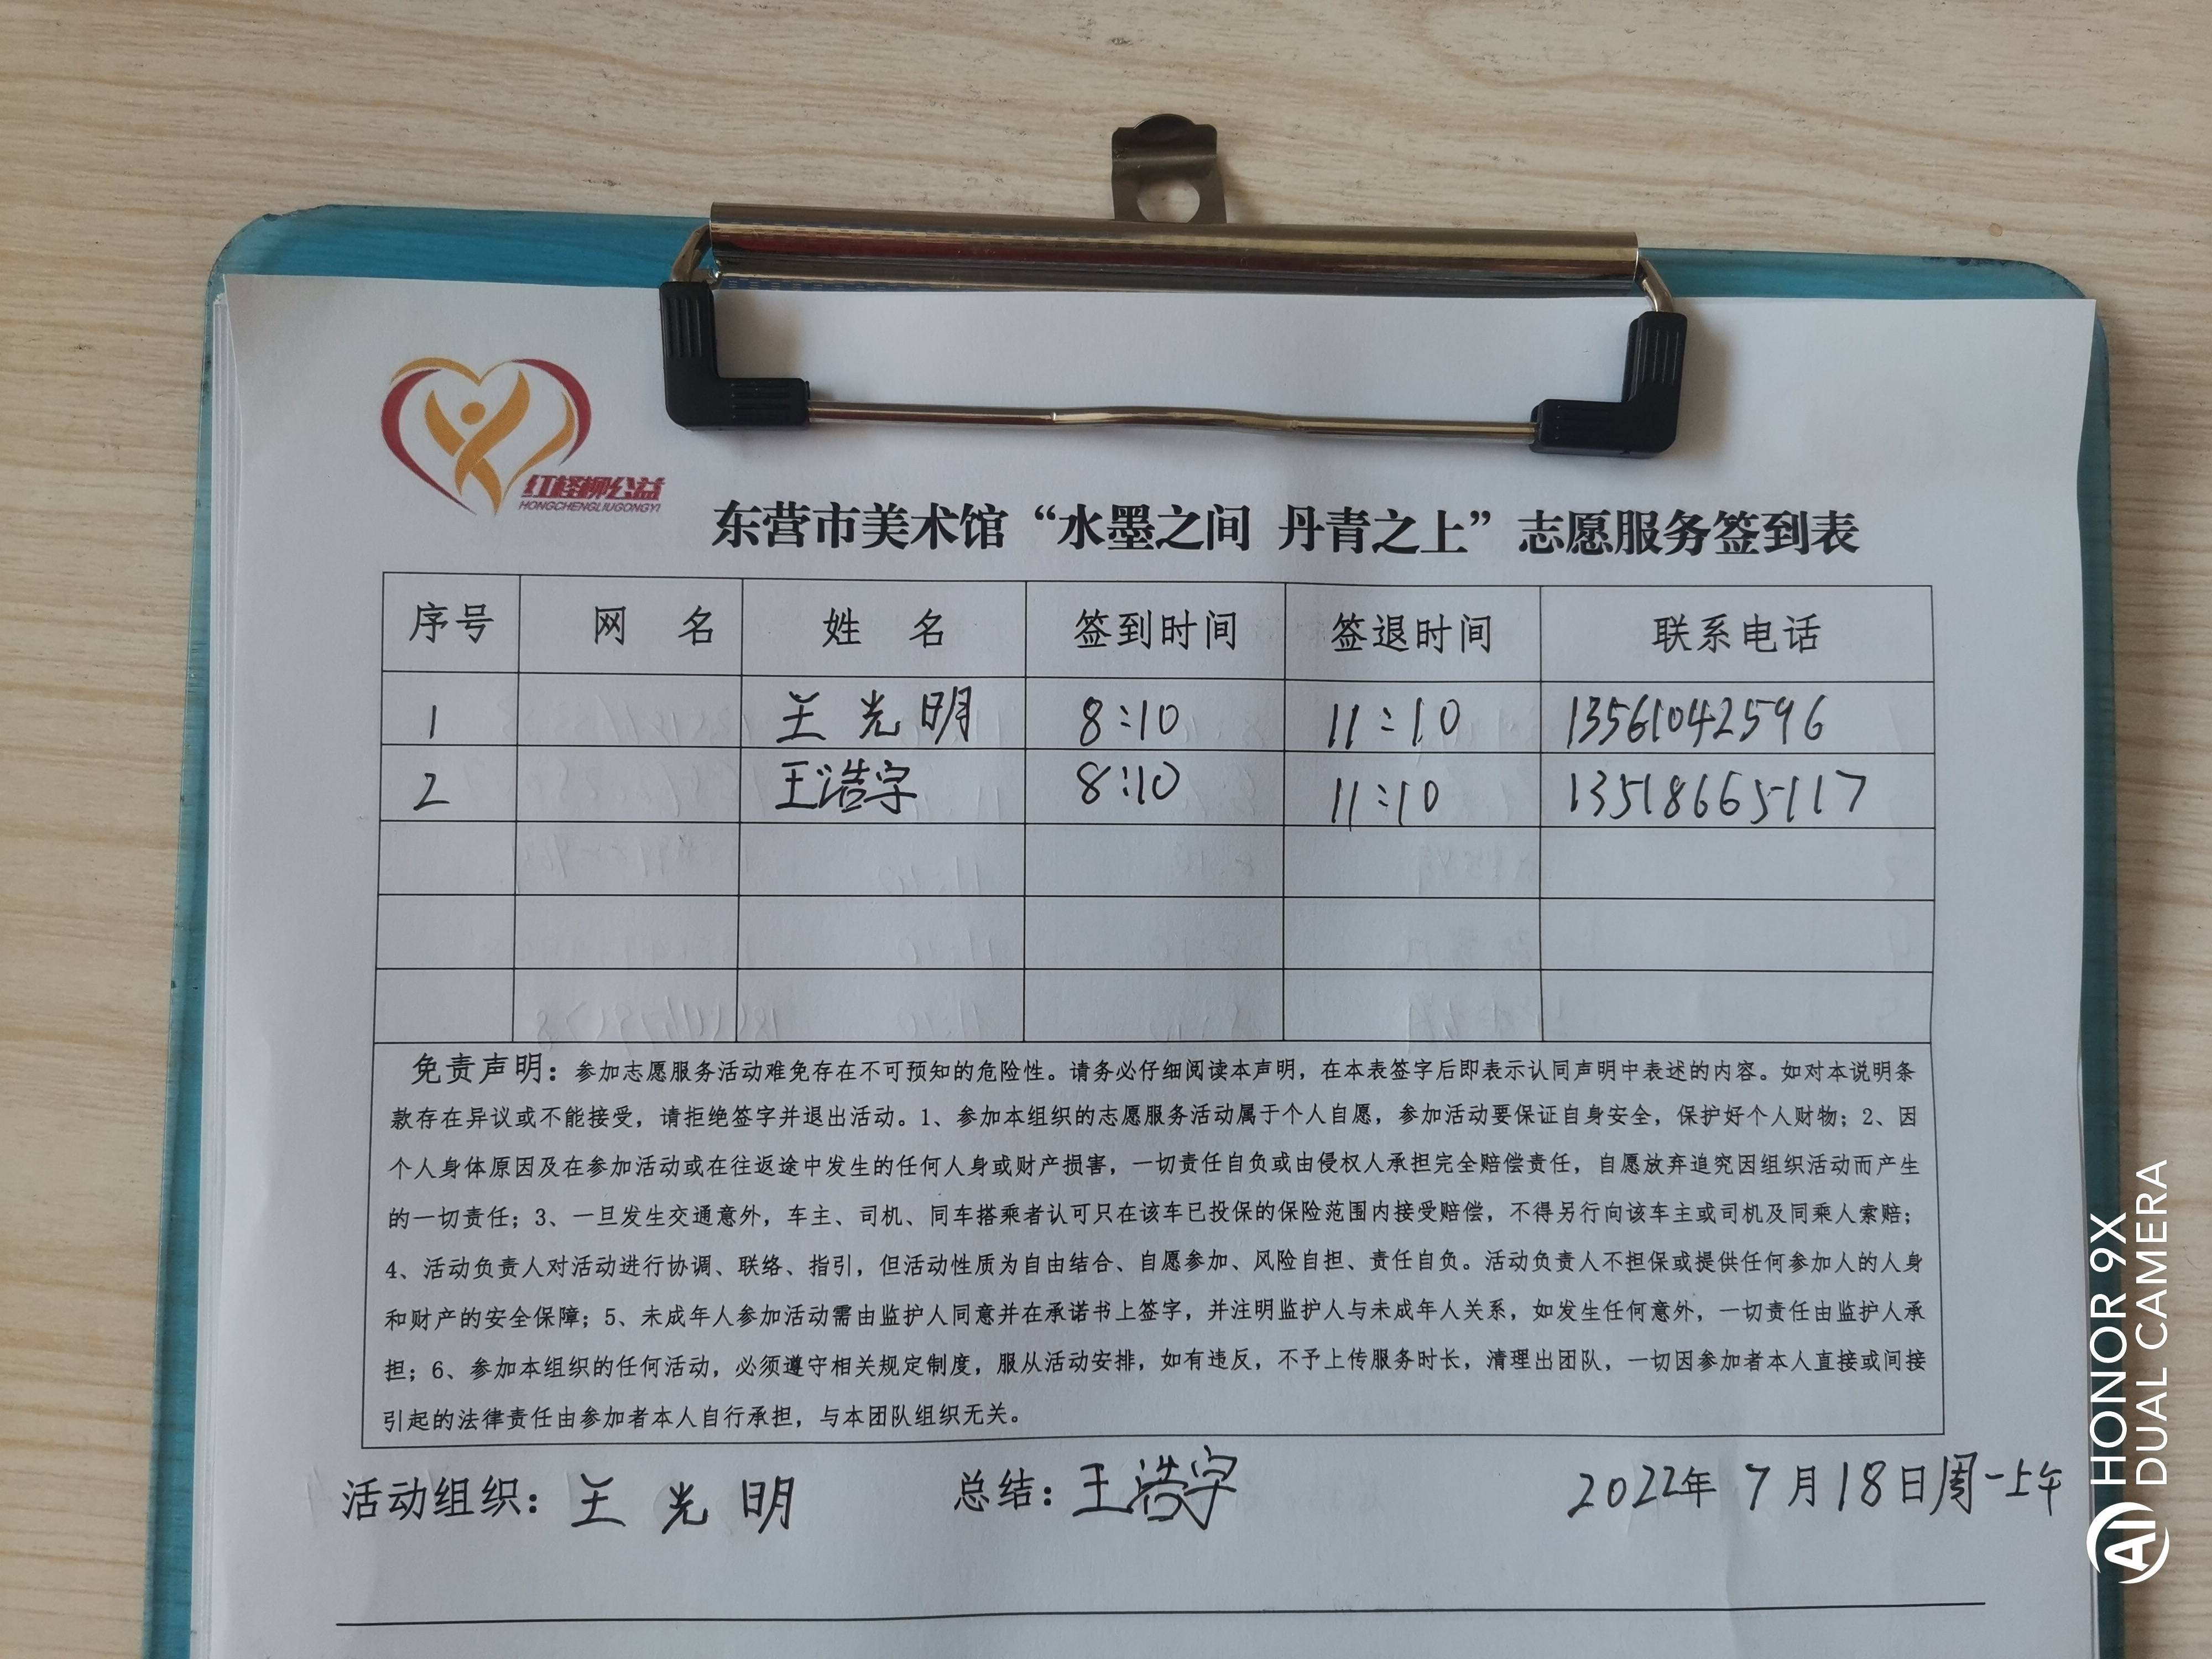 红柽柳公益
HONGCHENGLIUGONGYI
东营市美术馆“水墨之间 丹青之上”志愿服务签到表
序号 网 名 姓 名 签到时间 签退时间 联系电话
1 王光明 8:10 11:10 13561042596
2 王浩宇 8:10 11:10 13518665117
免责声明：参加志愿服务活动难免存在不可预知的危险性。请务必仔细阅读本声明，在本表签字后即表示认同声明中表述的内容。如对本说明条
款存在异议或不能接受，请拒绝签字并退出活动。1、参加本组织的志愿服务活动属于个人自愿，参加活动要保证自身安全，保护好个人财物；2、因
个人身体原因及在参加活动或在往返途中发生的任何人身或财产损害，一切责任自负或由侵权人承担完全赔偿责任，自愿放弃追究因组织活动而产生
的一切责任；3、一旦发生交通意外，车主、司机、同车搭乘者认可只在该车已投保的保险范围内接受赔偿，不得另行向该车主或司机及同乘人索赔；
4、活动负责人对活动进行协调、联络、指引，但活动性质为自由结合、自愿参加、风险自担、责任自负。活动负责人不担保或提供任何参加人的人身
和财产的安全保障；5、未成年人参加活动需由监护人同意并在承诺书上签字，并注明监护人与未成年人关系，如发生任何意外，一切责任由监护人承
担；6、参加本组织的任何活动，必须遵守相关规定制度，服从活动安排，如有违反，不予上传服务时长，清理出团队，一切因参加者本人直接或间接
引起的法律责任由参加者本人自行承担，与本团队组织无关。
活动组织：王光明 总结：王浩宇 2022年7月18日周一上午
HONOR 9X
AI DUAL CAMERA